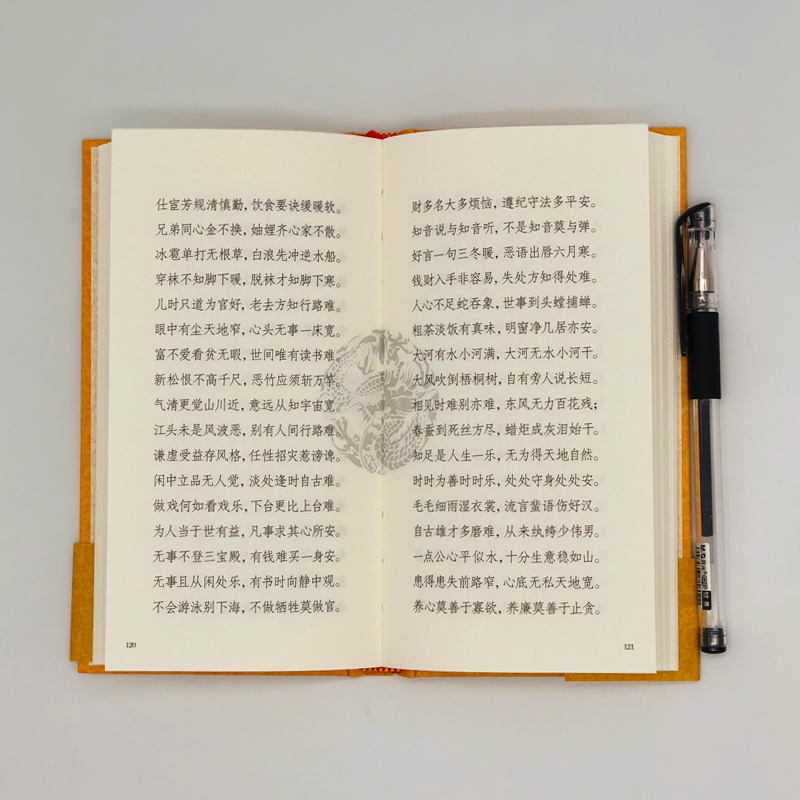 仕宦芳规清慎勤，饮食要诀缓暖软。
兄弟同心金不换，妯娌齐心家不散。
冰雹单打无根草，白浪先冲逆水船。
穿袜不知脚下暖，脱袜才知脚下寒。
儿时只道为官好，老去方知行路难。
眼中有尘天地窄，心头无事一床宽。
富不爱看贫无暇，世间唯有读书难。
新松恨不高千尺，恶竹应须斩万竿。
气清更觉山川近，意远从知宇宙宽。
江头未是风波恶，别有人间行路难。
谦虚受益存风格，任性招灾惹谤谗。
闲中立品无人觉，淡处逢时自古难。
做戏何如看戏乐，下台更比上台难。
为人当于世有益，凡事求其心所安。
无事不登三宝殿，有钱难买一身安。
无事且从闲处乐，有书时向静中观。
不会游泳别下海，不做牺牲莫做官。
120
财多名大多烦恼，遵纪守法多平安。
知音说与知音听，不是知音莫与弹。
好言一句三冬暖，恶语出唇六月寒。
钱财入手非容易，失处方知得处难。
人心不足蛇吞象，世事到头螳捕蝉。
粗茶淡饭有真味，明窗净几居亦安。
大河有水小河满，大河无水小河干。
大风吹倒梧桐树，自有旁人说长短。
相见时难别亦难，东风无力百花残；
春蚕到死丝方尽，蜡炬成灰泪始干。
知足是人生一乐，无为得天地自然。
时时为善时时乐，处处守身处处安。
毛毛细雨湿衣裳，流言蜚语伤好汉。
自古雄才多磨难，从来纨绔少伟男。
一点公心平似水，十分生意稳如山。
患得患失前路窄，心底无私天地宽。
养心莫善于寡欲，养廉莫善于止贪。
121
M&G